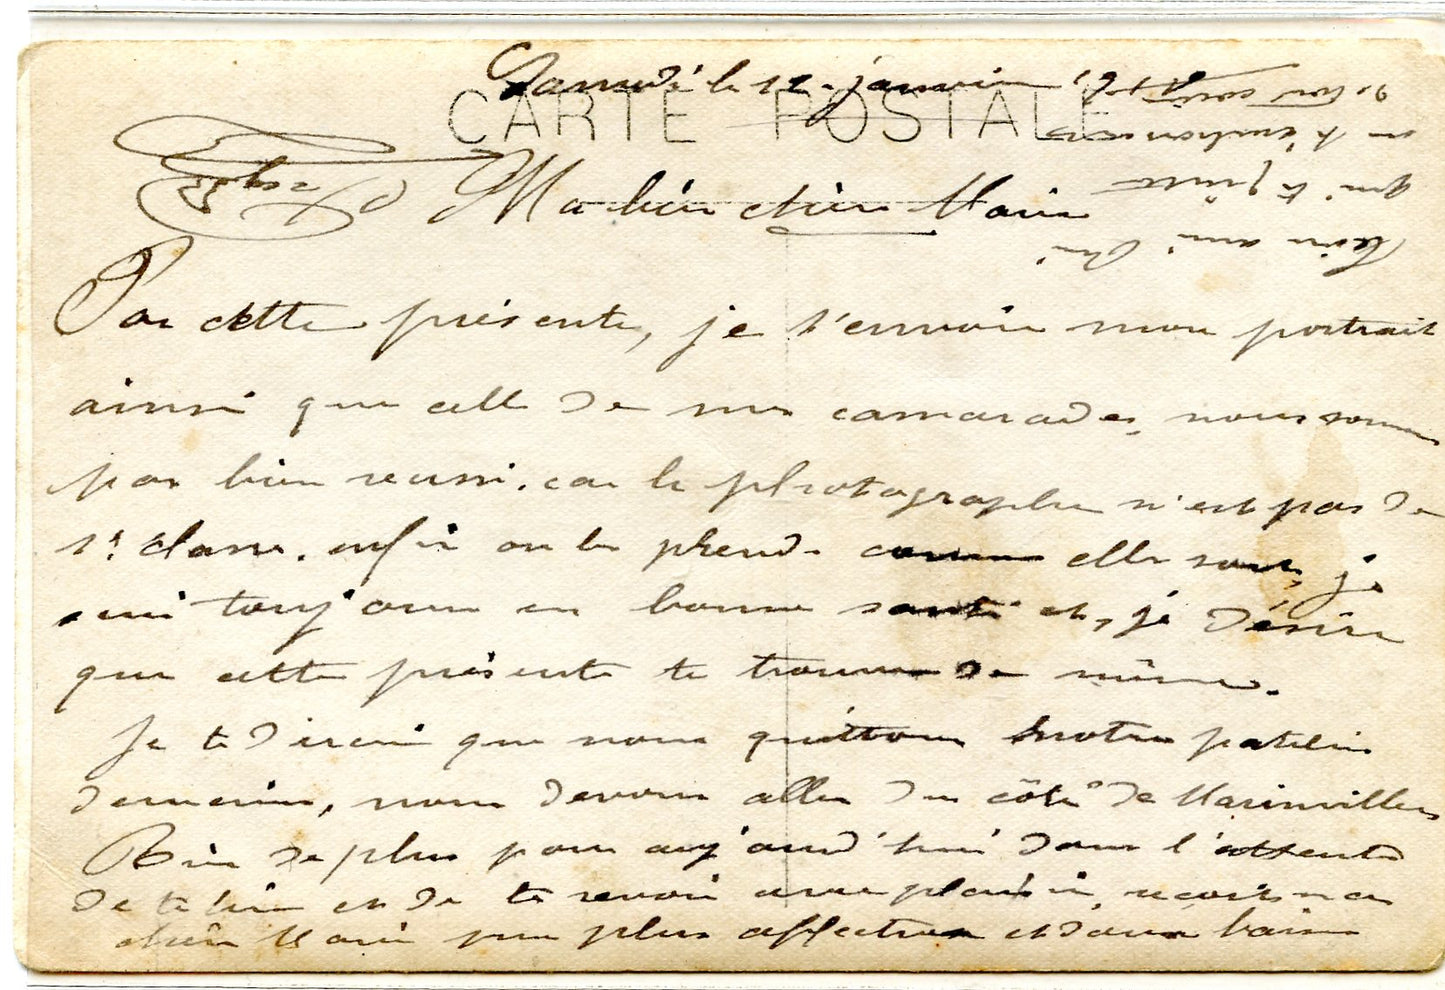 Samedi le 12 janvier 191
CARTE POSTALE
Ma bien chère Marie
Par cette présente, je t'envoie mon portrait
ainsi que celle de mes camarades, nous sommes
pas bien reussi. car le photographe n'est pas de
1e classe. enfin on les prend comme elle sont, je
suis toujours en bonne santé et, je désire
que cette présente te trouve de même.
Je te dirai que nous quittons notre patelin
demain, nous devons aller du côté de Marinvillers
Rien de plus pour aujourd'hui dans l'attente
de te lire et de te revoir avec plaisir, recois ma
chère Marie mes plus affectueux et doux baisers
ton ami
qui te